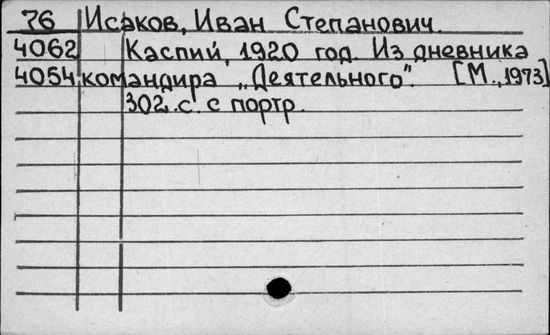 76 Исаков, Иван Степанович.
4062 Каспий, 1920 год. Из дневника
4054 командира „Деятельного". [М., 1973]
302 с. с портр.